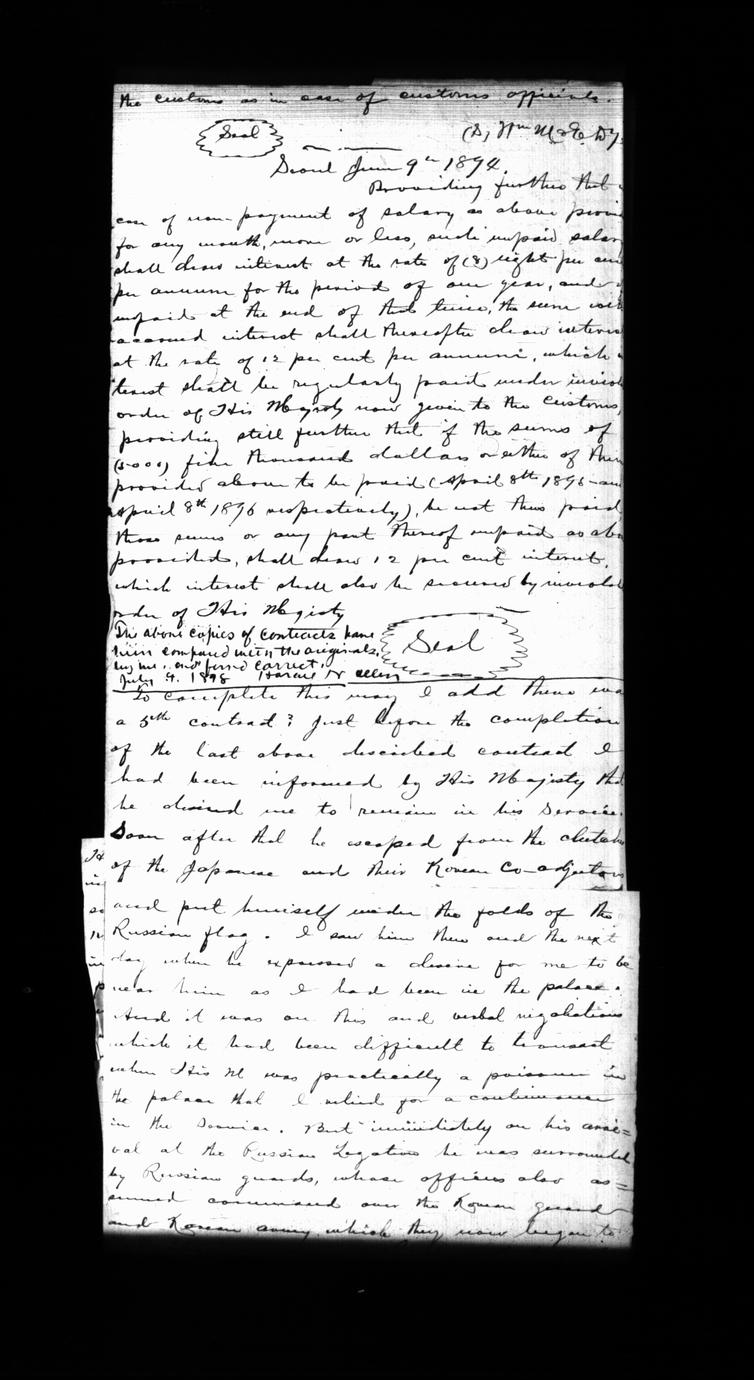 the customs as in case of customs officials.
Seal
(S) Wm McE. Dy
Seoul June 9th 1894.
Providing further that
case of non-payment of salary as above provi
for any month, more or less, such unpaid salary
shall draw interest at the rate of (8) eight per cen
per annum for the period of one year, and
unpaid at the end of that time, the sum with
accrued interest shall thereafter draw interes
at the rate of 12 per cent per annum, which
terest shall be regularly paid under inviol
order of His Majesty now given to the Customs,
providing still further that if the sums of
(5000) five thousand dollars or either of them
provided above to be paid (April 8th 1895 an
April 8th 1896 respectively), be not thus paid,
those sums or any part thereof unpaid as abo
provided, shall draw 12 per cent interest,
which interest shall also be secured by inviola
order of His Majesty
The above copies of contracts have
been compared with the originals,
by me, and found correct.
July 4. 1898 Horace N Allen
Seal
To complete this way I add there was
a 5th contract? Just before the completion
of the last above described contract I
had been informed by His Majesty tha
he desired me to remain in his Service.
Soon after that he escaped from the clutch
of the Japanese and their Korean Co-adjutors
and put himself under the folds of the
Russian flag. I saw him then and the next
day when he expressed a desire for me to be
near him as I had been in the palace.
And it was on this and verbal negotiations
which it had been difficult to transact
when His M was practically a prisoner in
the palace that I relied for a continuance
in the Service. But immediately on his arri=
val at the Russian Legation he was surrounded
by Russian guards, whose officers also as=
sumed command over the Korean guard
and Korean army which they now began to